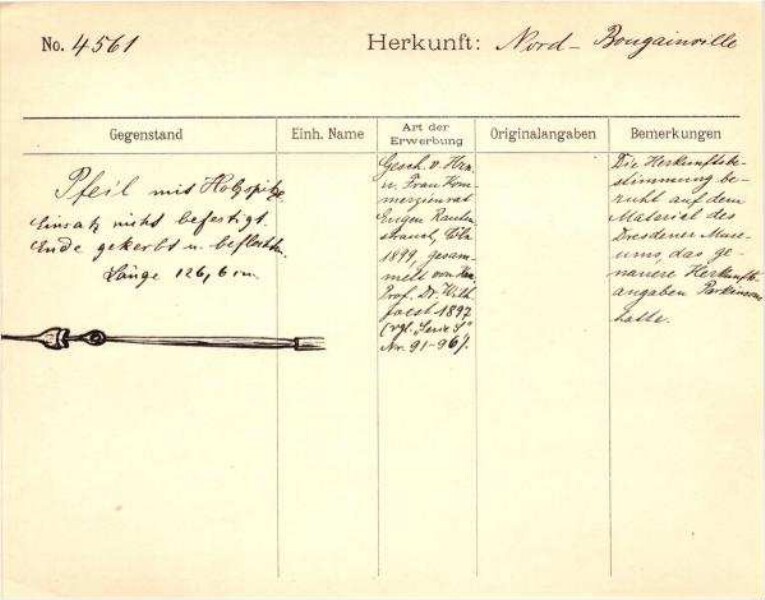 No. 4561
Herkunft: Nord-Bougainville
Gegenstand
Einh. Name
Art der
Erwerbung
Originalangaben
Bemerkungen
Pfeil mit Holzspitze.
Einsatz nicht befestigt.
Ende gekerbt u. beflochten.
Länge 126,6 cm.
Gesch. v. Hrn.
u. Frau Kom-
merzienrat
Eugen Rauten-
strauch, Cöln
1899, gesam-
melt von
Prof. Dr. Wilh.
Joest 1897
(vgl. Serie S"
Nr. 91-96).
Die Herkunftsbe-
stimmung be-
ruht auf dem
Material des
Dresdener Muse-
ums, das ge-
nauere Herkunfts-
angaben Parkinsons
hatte.